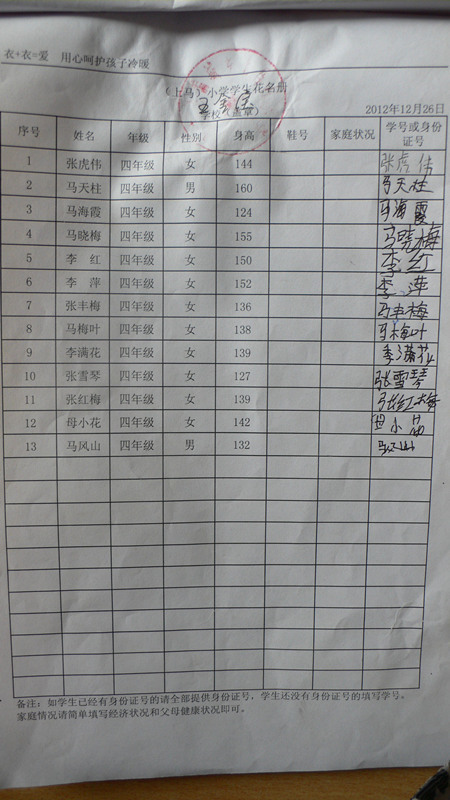 衣+衣=爱 用心呵护孩子冷暖
（上马）小学学生花名册
学校（盖章）
2012年12月26日
序号 姓名 年级 性别 身高 鞋号 家庭状况 学号或身份证号
1 张虎伟 四年级 女 144 张虎伟
2 马天柱 四年级 男 160 马天柱
3 马海霞 四年级 女 124 马海霞
4 马晓梅 四年级 女 155 马晓梅
5 李红 四年级 女 150 李红
6 李萍 四年级 女 152 李萍
7 张丰梅 四年级 女 136 丰梅
8 马梅叶 四年级 女 138 马梅叶
9 李满花 四年级 女 139 李满花
10 张雪琴 四年级 女 127 张雪琴
11 张红梅 四年级 女 139 张红梅
12 母小花 四年级 女 142 母小花
13 马风山 四年级 男 132 马风山
备注：如学生已经有身份证号的请全部提供身份证号，学生还没有身份证号的填写学号。
家庭情况请简单填写经济状况和父母健康状况即可。